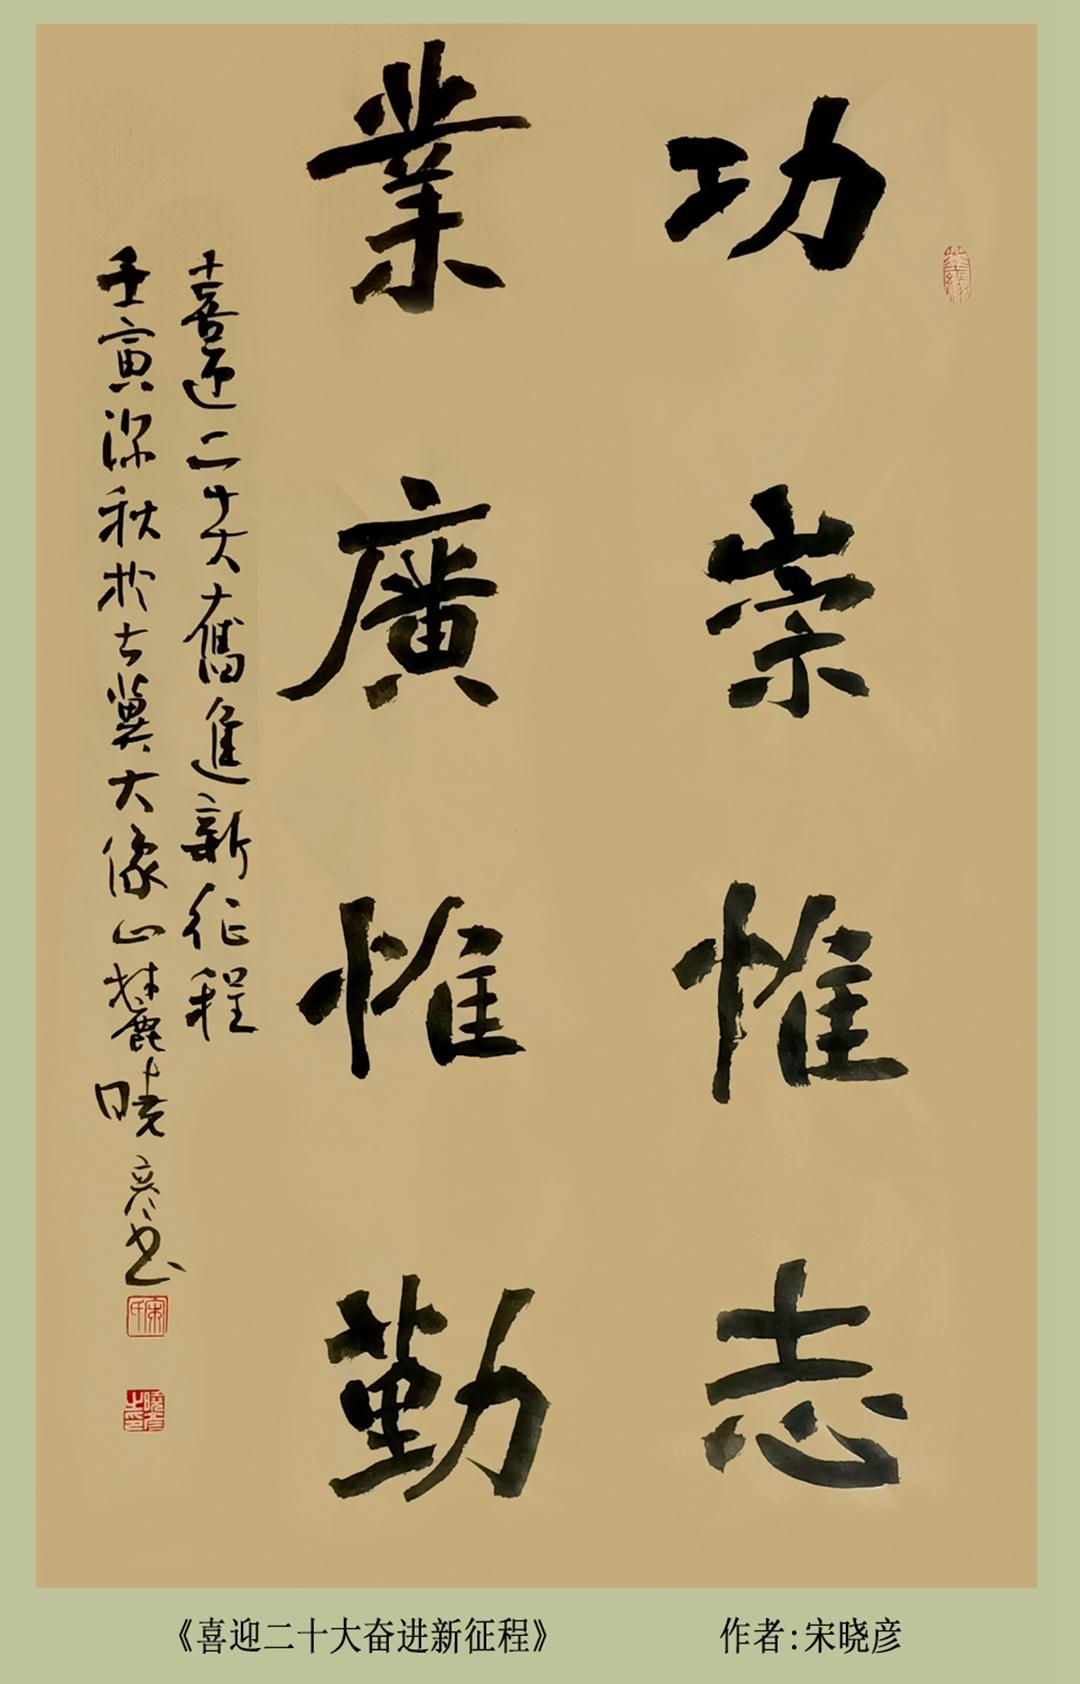 功崇惟志
業廣惟勤
喜迎二十大奮進新征程
壬寅深秋於古冀大像山林麓曉彦书
宋氏
曉彦之印
《喜迎二十大奋进新征程》
作者:宋晓彦